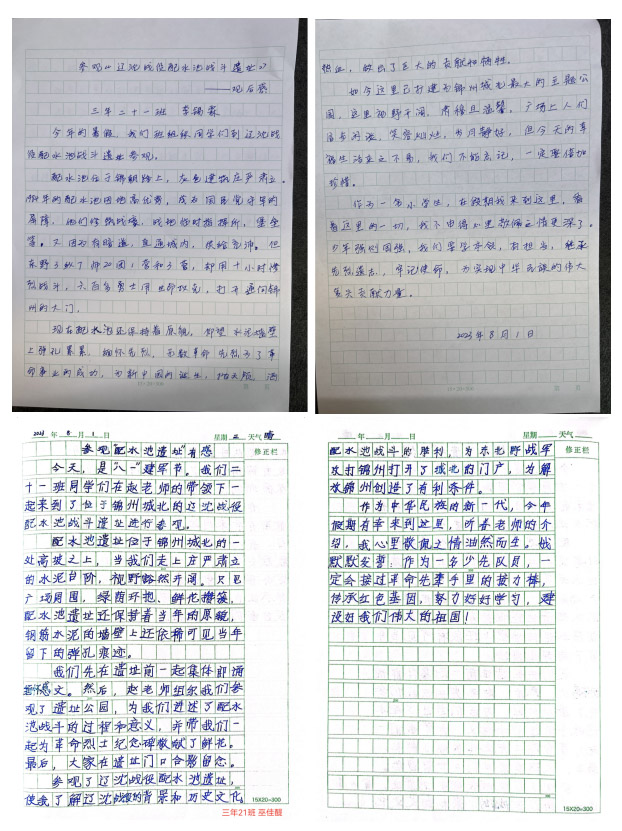 参观《辽沈战役配水池战斗遗址》
——观后感
三年二十一班
今年的暑假，我们班组织同学们到辽沈战
役配水池战斗遗址参观。
配水池位于锦朝路上，灰色建筑庄严肃立。
年的配水池因地高优势，成为国民党守军的
屏障，他们修筑战壕，战地临时指挥所，堡垒
等。又因打有暗道，直通城内，供给充沛。但
东野3纵7师20团1营和3营，却用十小时惨
烈战斗，六百名勇士用生命攻克，打开通向锦
州的大门。
现在配水池还保持着原貌，仰望水泥墙壁
上弹孔累累，缅怀先烈，无数革命先烈为了革
命事业的成功，为新中国的诞生，抛头颅、洒
热血，做出了巨大的贡献和牺牲。
如今这里已打造为锦州城北最大的主题公
园，这里视野开阔，肃穆且温馨，广场上人们
信步闲游，笑容灿烂，岁月静好，但今天的幸
福生活来之不易，我们不能忘记，一定要倍加
珍惜。
作为一名小学生，在假期我来到这里，看
着这里的一切，我不由得心里敬佩之情更深了。
少年强则国强，我们要学本领，有担当，继承
先烈遗志，牢记使命，为实现中华民族的伟大
复兴贡献力量。
2023年8月1日
2023年8月1日 星期二 天气晴
参观“配水池遗址”有感 修正栏
今天，是“八一”建军节。我们二
十一班同学们在赵老师的带领下一
起来到了位于锦州城北的辽沈战役
配水池战斗遗址进行参观。
配水池遗址位于锦州城北的一
处高坡之上，当我们走上庄严肃立
的水泥台阶，视野豁然开阔。只见
广场周围，绿荫环抱、鲜花簇簇，
配水池遗址还保持着当年的原貌，
钢筋水泥的墙壁上还依稀可见当年
留下的弹孔痕迹。
我们先在遗址前一起集体朗诵
缅怀感文。然后，赵老师组织我们参
观了遗址公园，为我们讲述了配水
池战斗的过程和意义，并带我们一
起为革命烈士纪念碑敬献了鲜花。
最后，大家在遗址门口合影留念。
参观了辽沈战役配水池遗址，
使我了解辽沈战役的背景和历史文化，
15X20=300
三年21班 巫佳醒
年 月 日 星期 天气
配水池战斗的胜利，为东北野战军 修正栏
攻打锦州打开了城北的门户，为解
放锦州创造了有利条件。
作为中华民族的新一代，今年
假期有幸来到这里，听着老师的介
绍，我心里敬佩之情油然而生。我
默默发誓，作为一名少先队员，一
定会接过革命先辈手里的接力棒，
传承红色基因，努力好好学习，建
设好我们伟大的祖国！
15X20=300